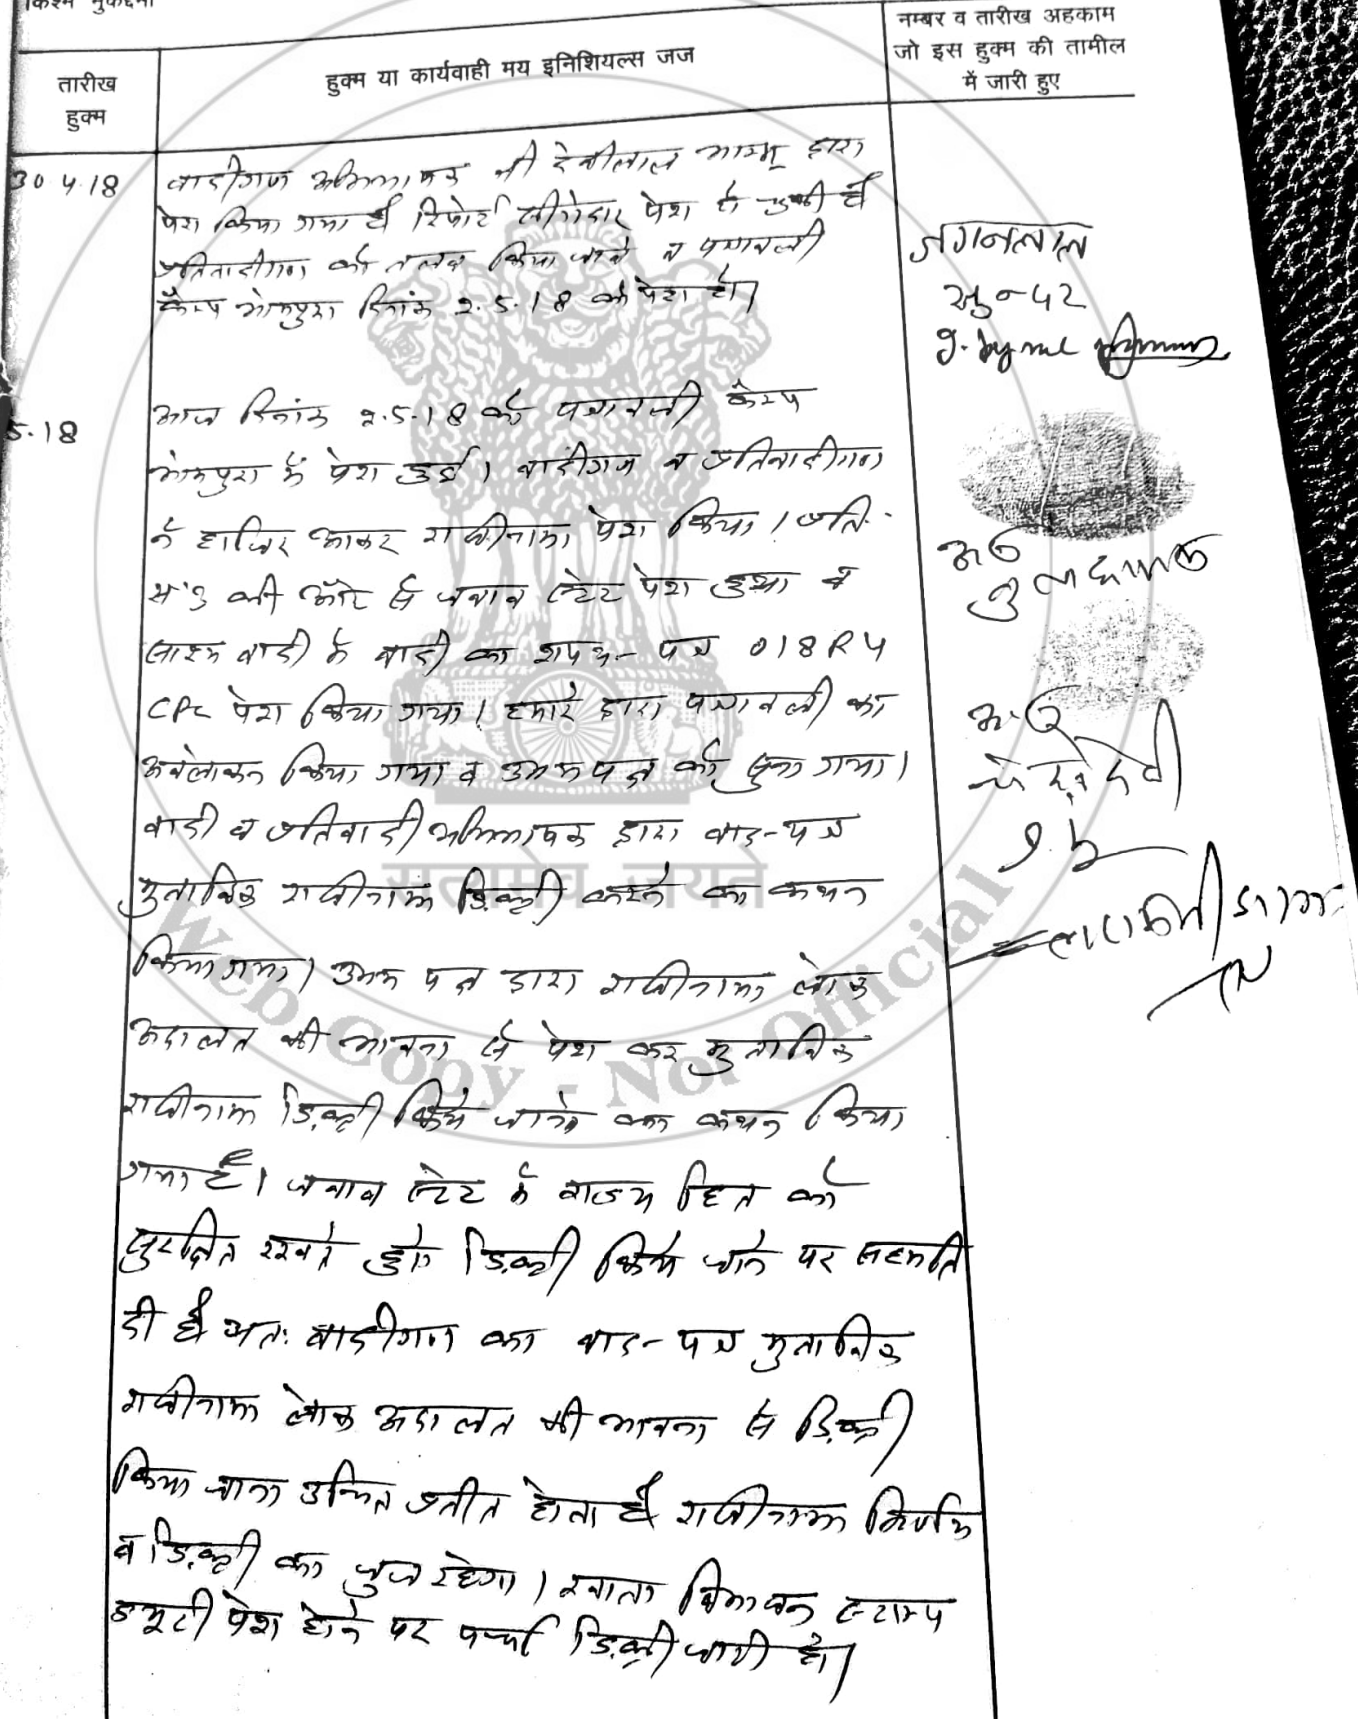 किस्म मुकदमा
तारीख
हुक्म
हुक्म या कार्यवाही मय इनिशियल्स जज
नम्बर व तारीख अहकाम
जो इस हुक्म की तामील
में जारी हुए
30 4.18
वादीगण अभिभाषक श्री देवीलाल द्वारा
पेश किया गया है रिपोर्ट पेश हो चुकी है
प्रतिवादीगण को तलब किया जावे व पत्रावली
कैम्प दिनांक 2.5.18 को पेश हो।
5.18
आज दिनांक 2.5.18 को पत्रावली कैम्प
में पेश हुई। वादीगण व प्रतिवादीगण
ने हाजिर आकर राजीनामा पेश किया। प्रति.
सं. 3 की ओर से जवाब स्टेट पेश हुआ व
साक्ष्य वादी में वादी का शपथ-पत्र 018R4
CPC पेश किया गया। हमारे द्वारा पत्रावली का
अवलोकन किया गया व उभय पक्ष को सुना गया।
वादी व प्रतिवादी अभिभाषक द्वारा वाद-पत्र
मुताबिक राजीनामा डिक्री करने का कथन
किया गया। उभय पक्ष द्वारा राजीनामा लोक
अदालत की भावना से पेश कर मुताबिक
राजीनामा डिक्री किये जाने का कथन किया
गया है। जवाब स्टेट में राज्य हित को
सुरक्षित रखते हुए डिक्री किये जाने पर सहमति
दी है अतः वादीगण का वाद-पत्र मुताबिक
राजीनामा लोक अदालत की भावना से डिक्री
किया जाना उचित प्रतीत होता है राजीनामा निर्णय
व डिक्री का जुज रहेगा। खाता विभाजन स्टाम्प
ड्यूटी पेश होने पर पर्चा डिक्री जारी हो।
जगनलाल
सत्यमेव जयते
Web Copy - Not Official